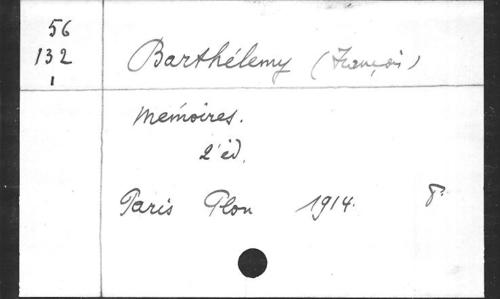 56
132
1
Barthélemy (François)
Mémoires.
2 éd.
Paris Plon 1914. 8°